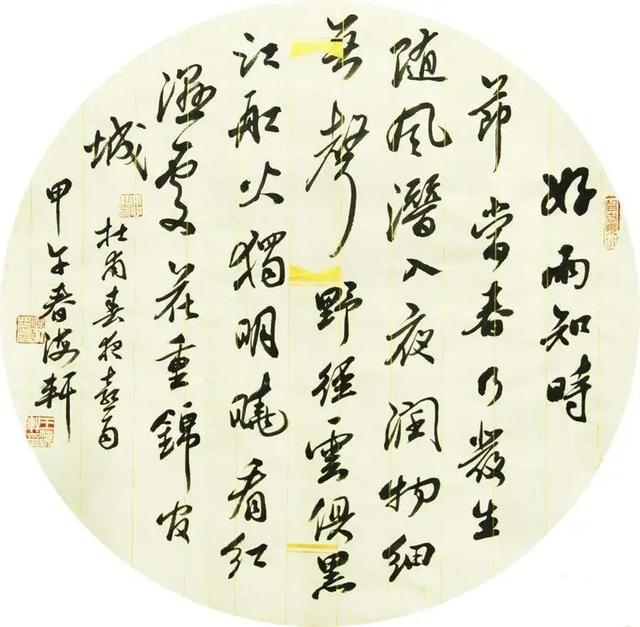 好雨知時
節當春乃發生
随風潛入夜潤物細
無聲野徑雲俱黑
江船火獨明曉看紅
濕處花重錦官
城
杜甫春夜喜雨
甲午春海軒